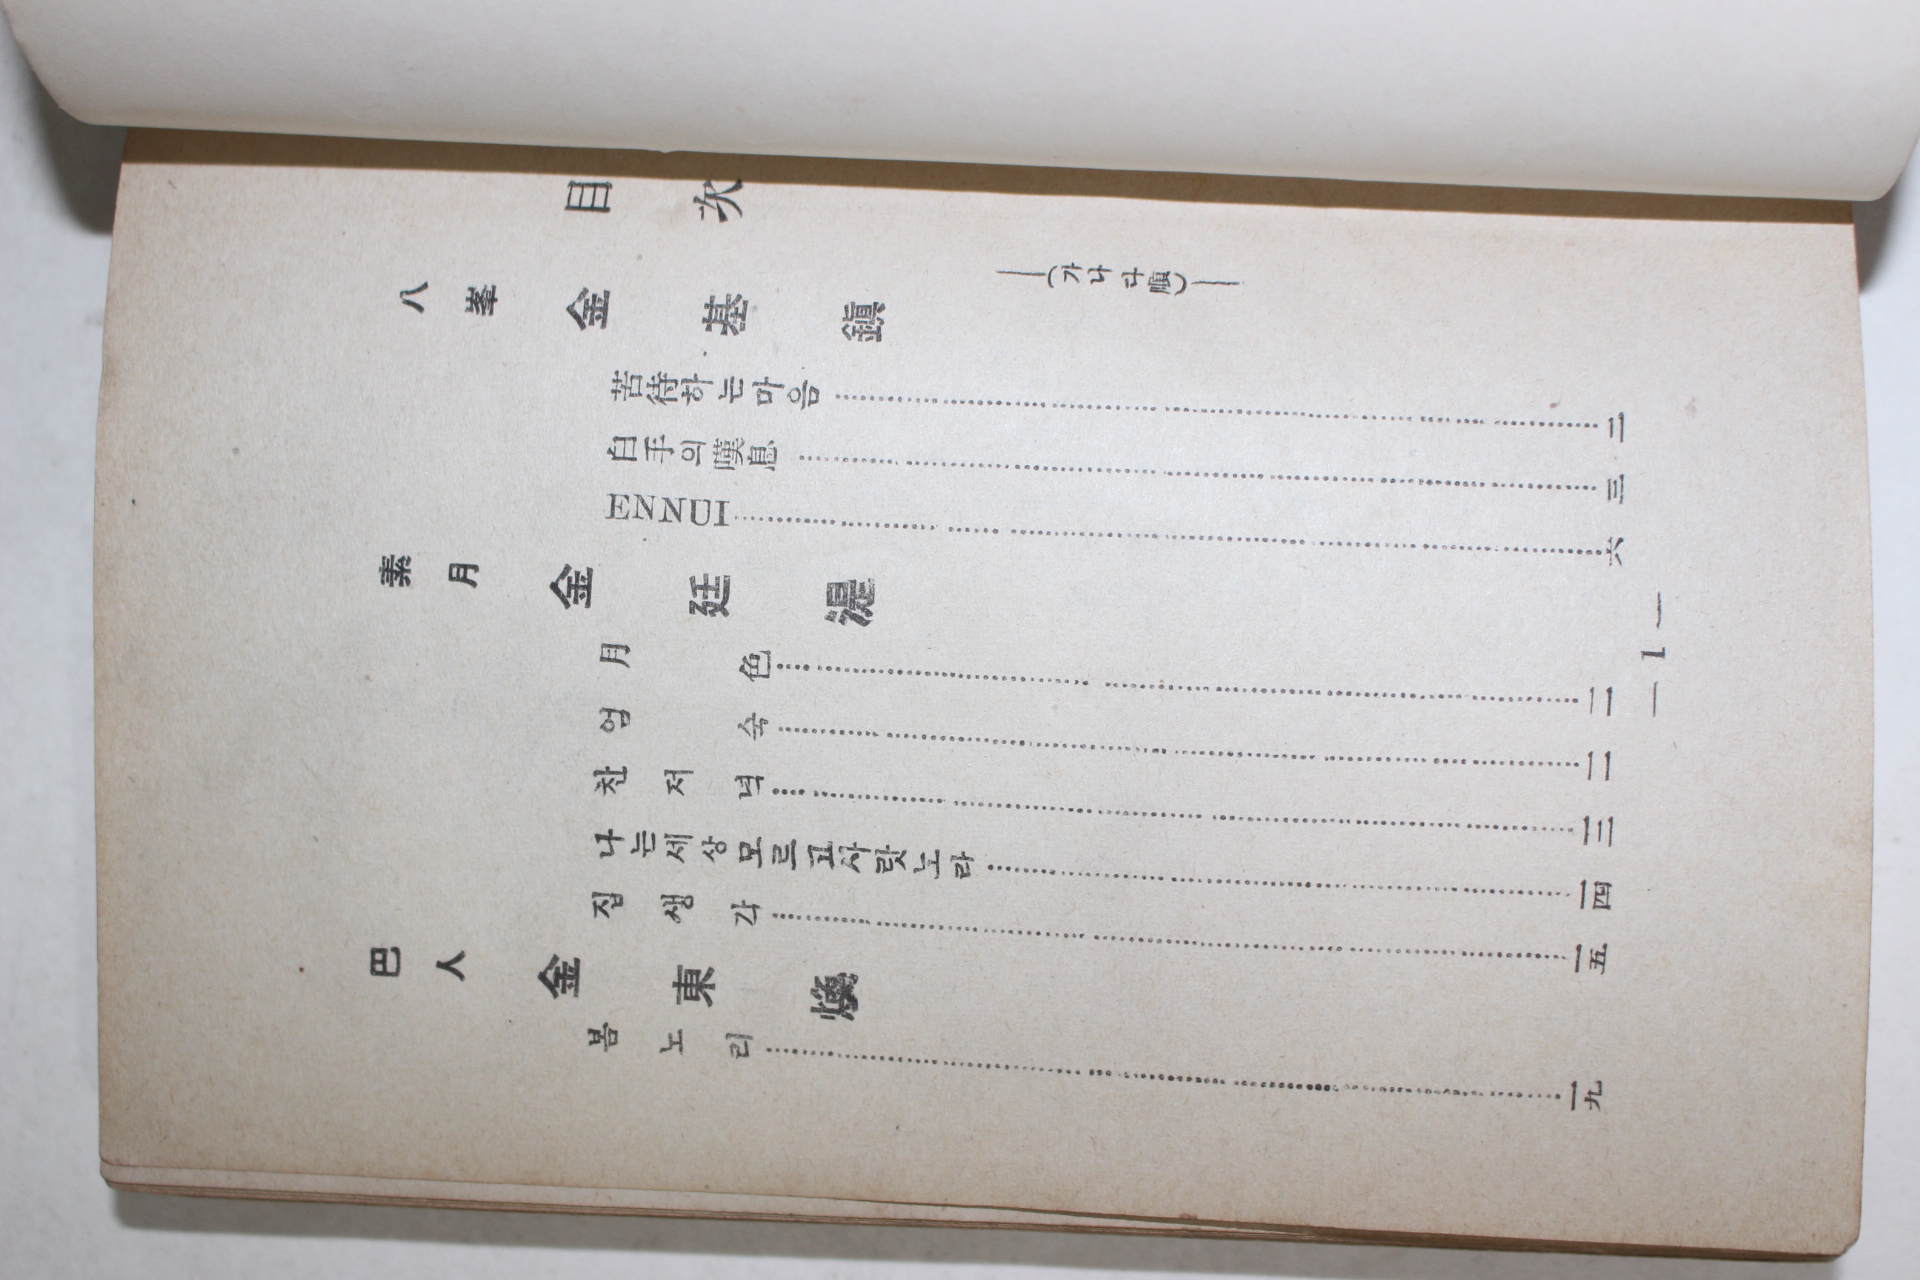 目次
(가나다順)
八峯 金基鎭
苦待하는마음 二
白手의嘆息 三
ENNUI 六
素月 金廷湜
月色 一一
엄숙 一二
찬저녁 一三
나는세상모르고사랏노라 一四
집생각 一五
巴人 金東煥
봄노리 一九
— 1 —